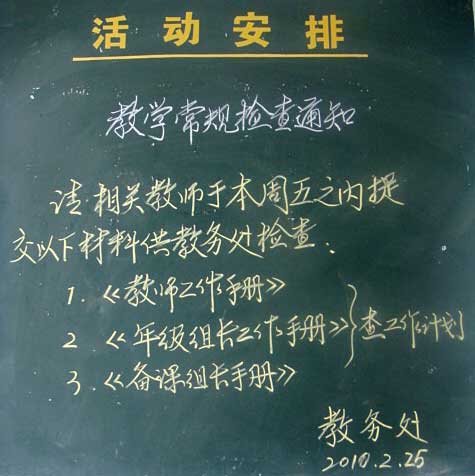 活动安排
教学常规检查通知
请相关教师于本周五之内提
交以下材料供教务处检查：
1.《教师工作手册》
2《年级组长工作手册》}查工作计划
3.《备课组长手册》
教务处
2010.2.25